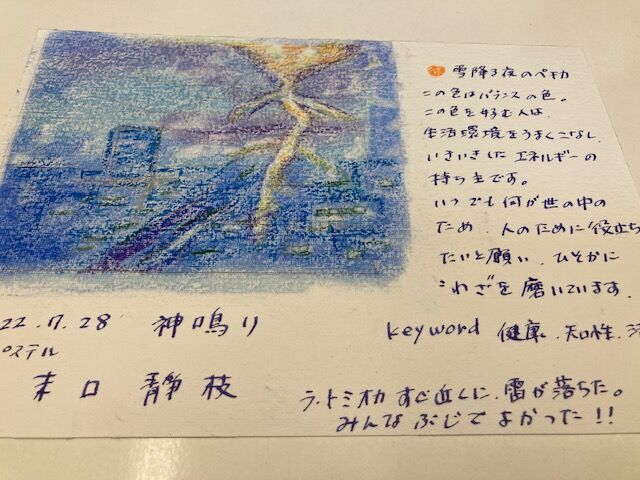 雪降る夜のペチカ
この色はバランスの色。
この色を好む人は、
生活環境をうまくこなし、
いきいきした エネルギーの
持ち主です。
いつでも何が世の中の
ため、人のために役立ち
たいと願い、ひそかに
わざを磨いています。
keyword 健康、知性、
22.7.28 神鳴り
パステル
末口 静枝
ラ・トミオカ すぐ近くに、雷が落ちた。
みんな ぶじで よかった!!